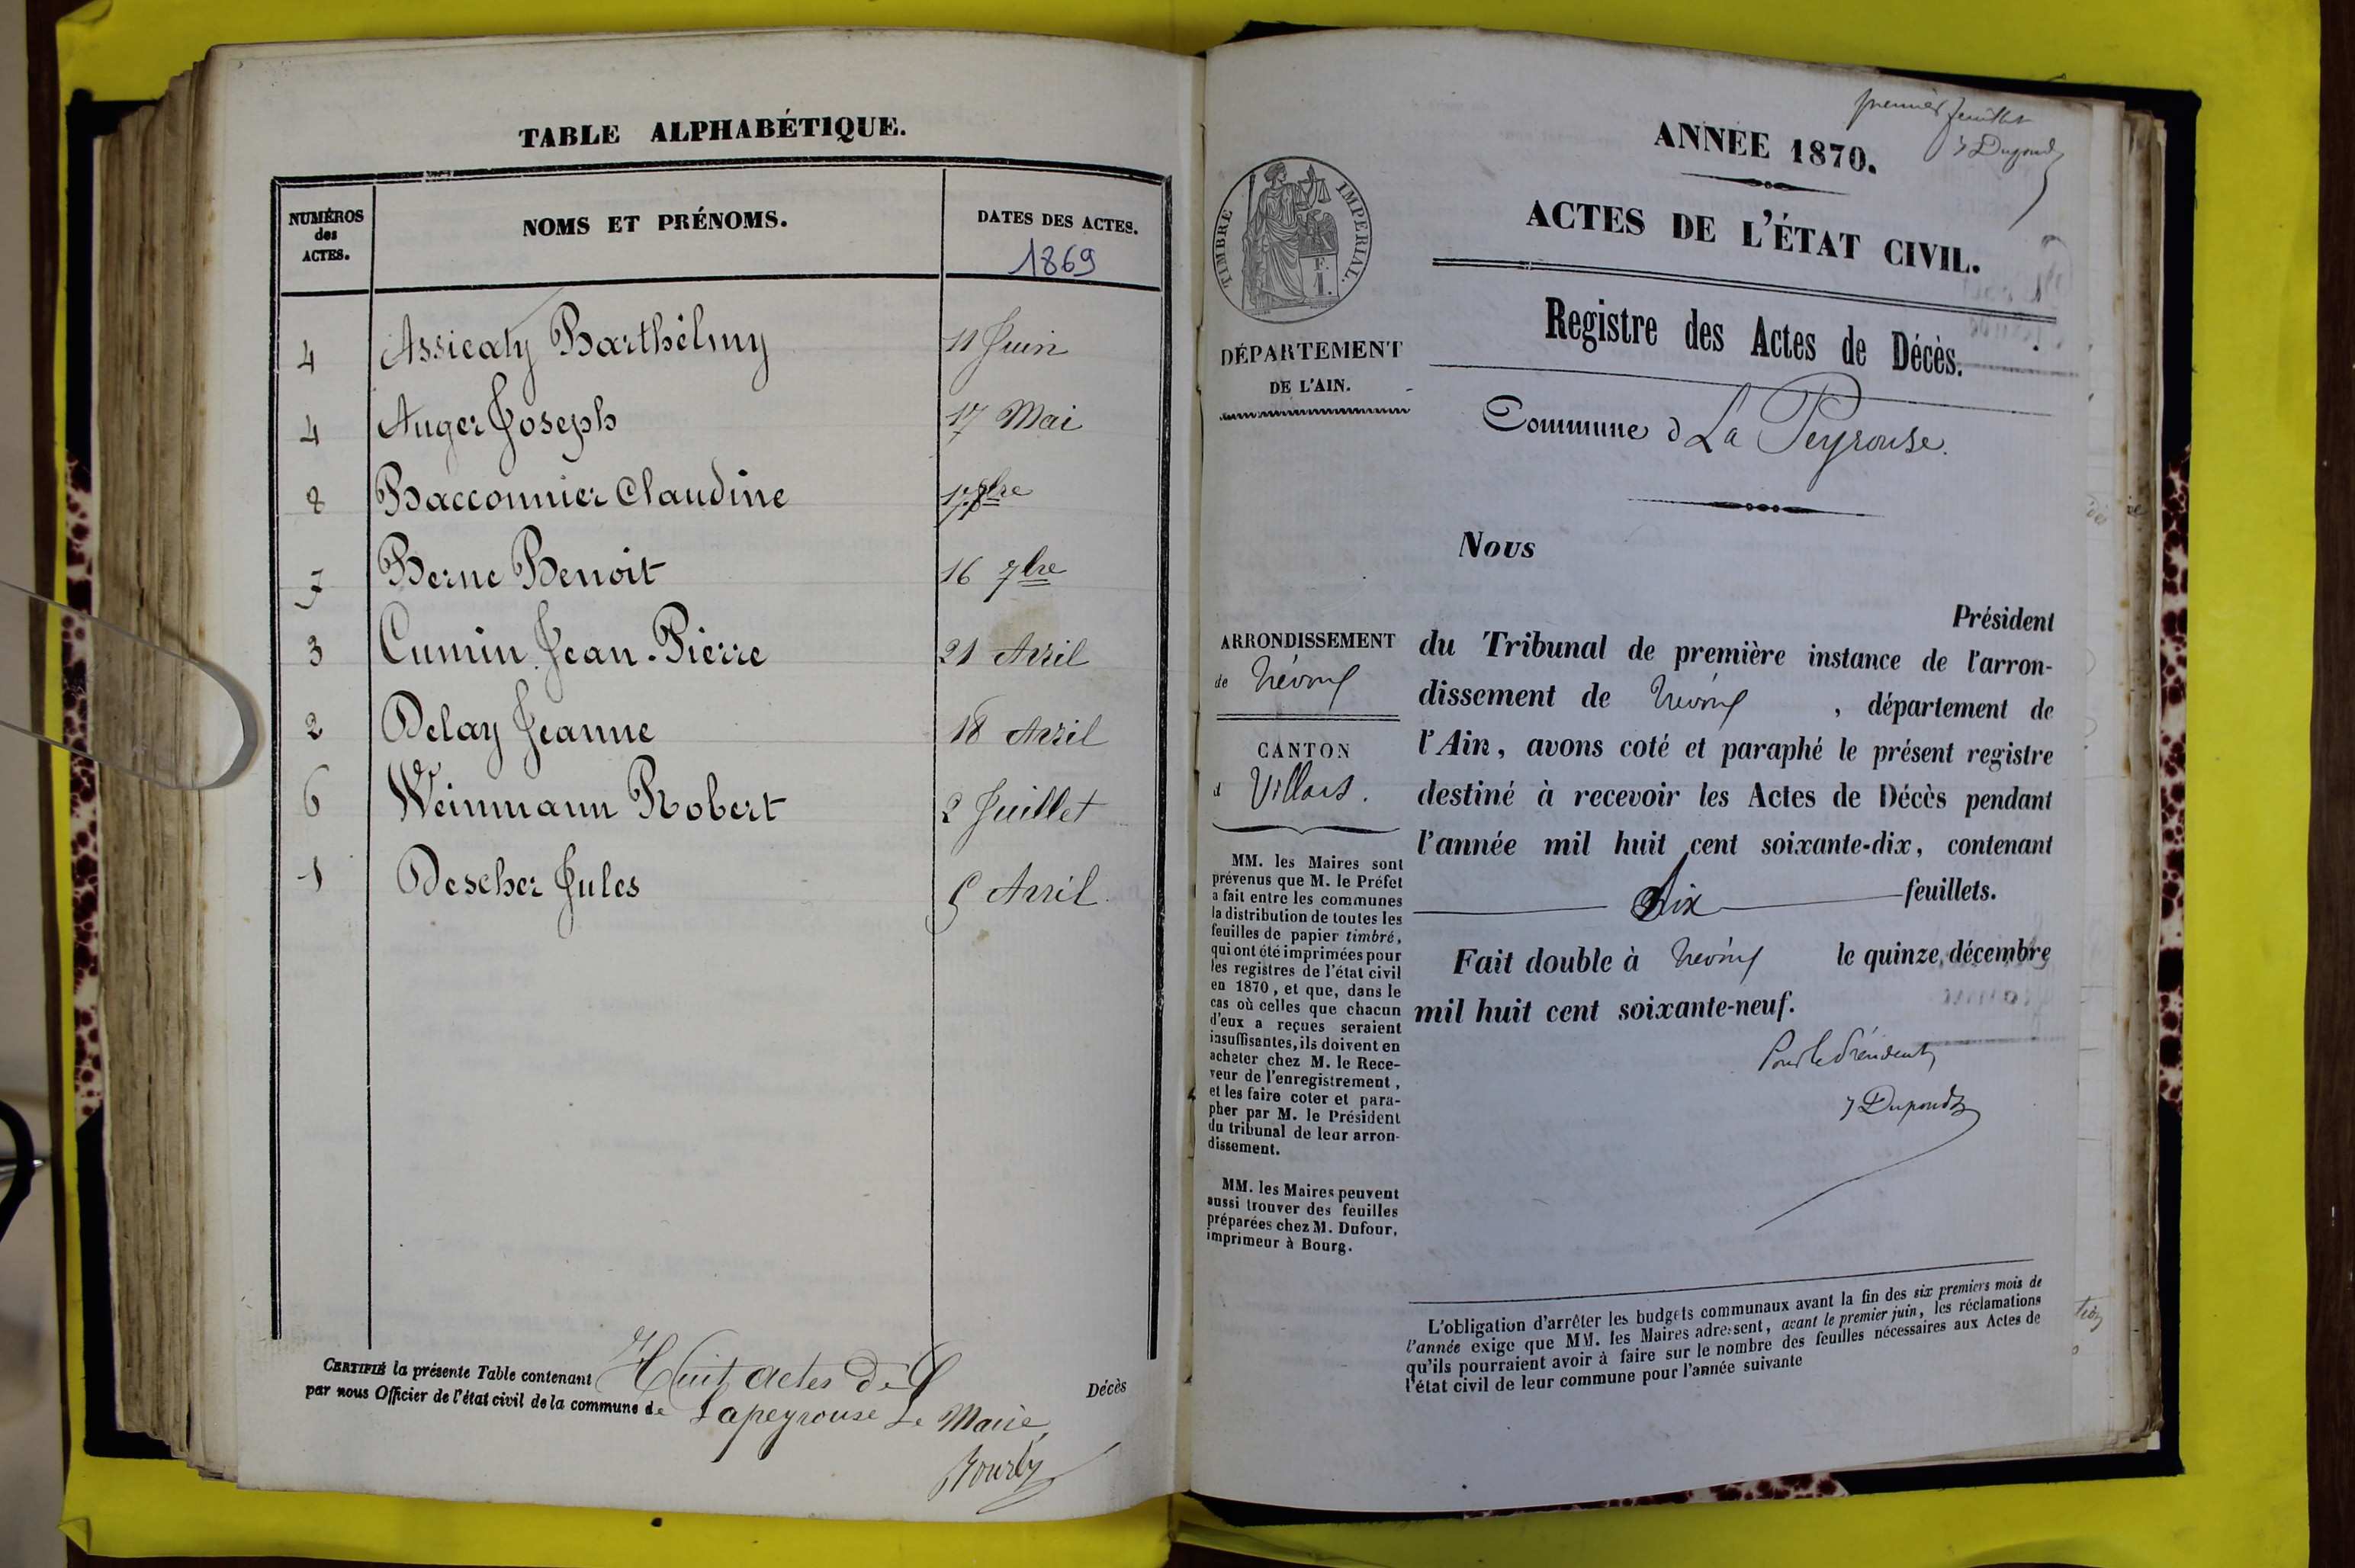 TABLE ALPHABÉTIQUE.
NUMÉROS des ACTES.
NOMS ET PRÉNOMS.
DATES DES ACTES.
1869
4 Assicaty Barthélmy 11 Juin
4 Auger Joseph 17 Mai
8 Bacconnier Claudine
7 Berne Benoit 16 7bre
3 Cumin Jean-Pierre 21 Avril
2 Delay Jeanne 18 Avril
6 Weinmann Robert 2 Juillet
1 Descher Jules 5 Avril
CERTIFIÉ la présente Table contenant Huit actes de Décès
par nous Officier de l'état civil de la commune de Lapeyrouse Le Maire,
premier feuillet
ANNÉE 1870.
TIMBRE IMPERIAL.
F. 1.
ACTES DE L'ÉTAT CIVIL.
Registre des Actes de Décès.
DÉPARTEMENT
DE L'AIN.
Commune d La Peyrouse.
Nous
Président
du Tribunal de première instance de l'arron-
dissement de Trévoux, département de
l'Ain, avons coté et paraphé le présent registre
destiné à recevoir les Actes de Décès pendant
l'année mil huit cent soixante-dix, contenant
feuillets.
Fait double à Trévoux le quinze décembre
mil huit cent soixante-neuf.
Pour le Président
ARRONDISSEMENT
de Trévoux
CANTON
d Villars.
MM. les Maires sont
prévenus que M. le Préfet
a fait entre les communes
la distribution de toutes les
feuilles de papier timbré,
qui ont été imprimées pour
les registres de l'état civil
en 1870, et que, dans le
cas où celles que chacun
d'eux a reçues seraient
insuffisantes, ils doivent en
acheter chez M. le Rece-
veur de l'enregistrement,
et les faire coter et para-
pher par M. le Président
du tribunal de leur arron-
dissement.
MM. les Maires peuvent
aussi trouver des feuilles
préparées chez M. Dufour,
imprimeur à Bourg.
L'obligation d'arrêter les budgets communaux avant la fin des six premiers mois de
l'année exige que MM. les Maires adressent, avant le premier juin, les réclamations
qu'ils pourraient avoir à faire sur le nombre des feuilles nécessaires aux Actes de
l'état civil de leur commune pour l'année suivante